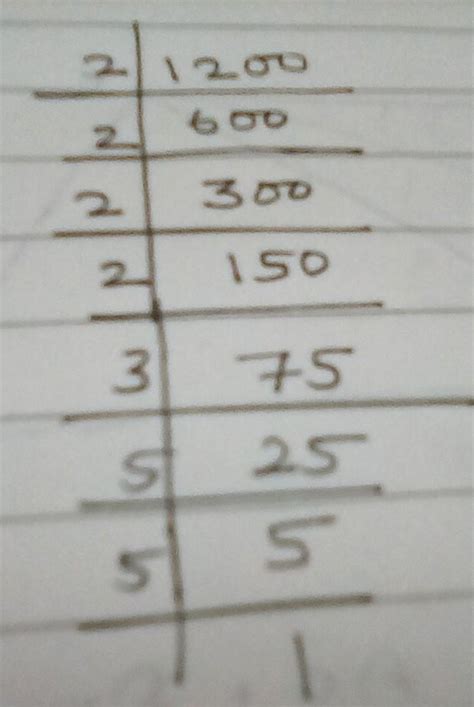 2 1200
2 600
2 300
2 150
3 75
5 25
5 5
1